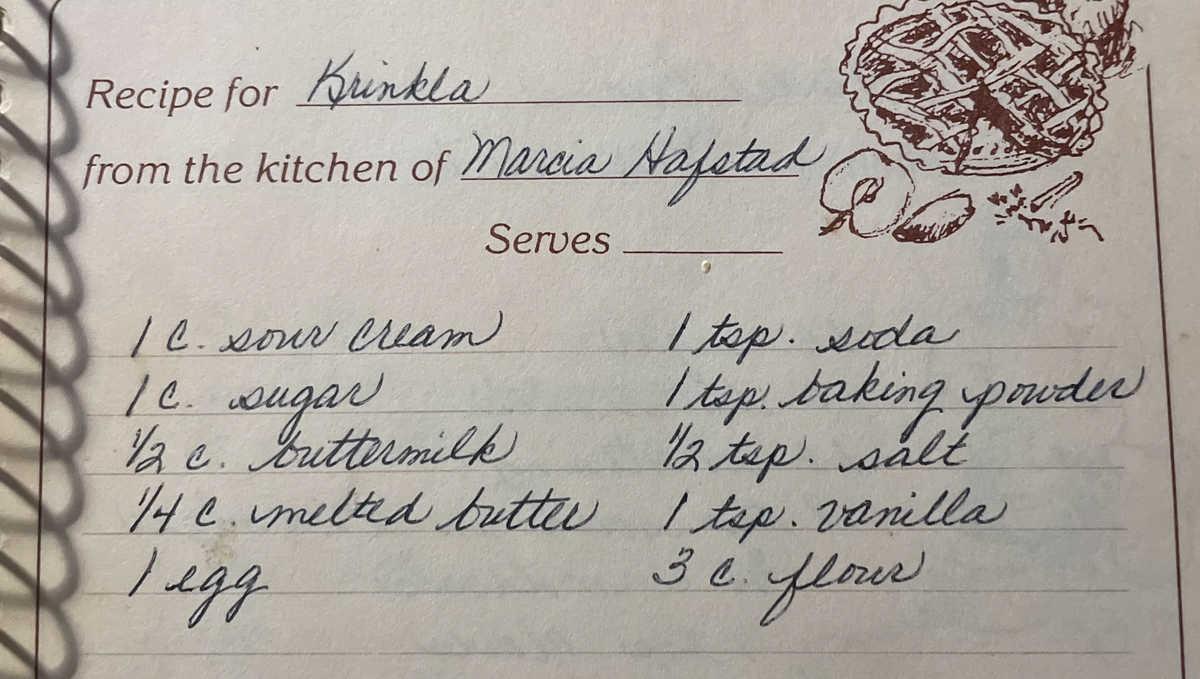 Recipe for Krinkla
from the kitchen of Marcia Hafstad
Serves
1 c. sour cream
1 c. sugar
1/2 c. buttermilk
1/4 c. melted butter
1 egg
1 tsp. soda
1 tsp. baking powder
1/2 tsp. salt
1 tsp. vanilla
3 c. flour